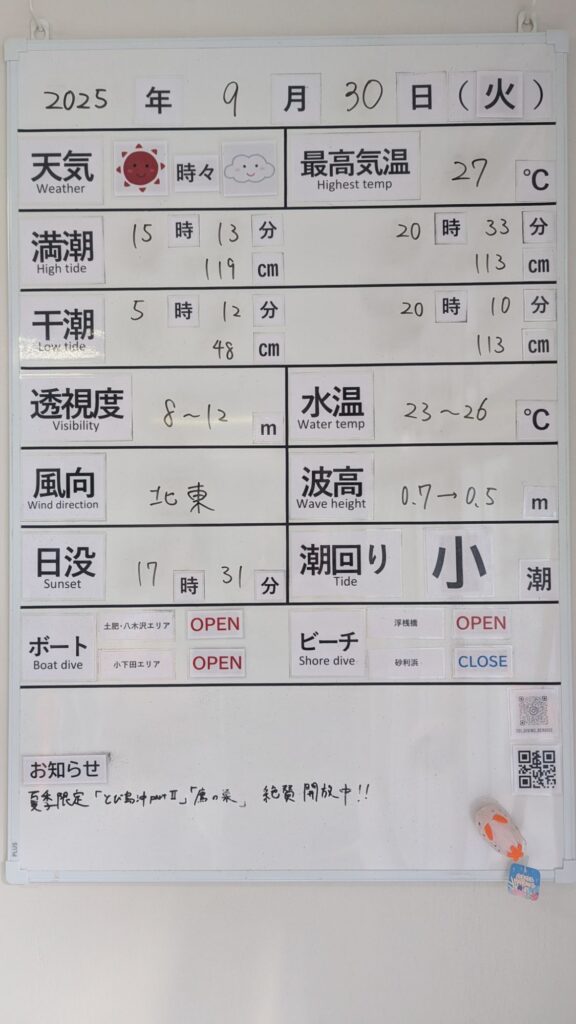 2025 年 9 月 30 日 (火)
天気 時々 最高気温 27 ℃
Weather Highest temp
満潮 15 時 13 分 20 時 33 分
High tide 119 cm 113 cm
干潮 5 時 12 分 20 時 10 分
Low tide 48 cm 113 cm
透視度 8～12 m 水温 23～26 ℃
Visibility Water temp
風向 北東 波高 0.7→0.5 m
Wind direction Wave height
日没 17 時 31 分 潮回り 小 潮
Sunset Tide
ボート 土肥・八木沢エリア OPEN ビーチ 浮桟橋 OPEN
Boat dive 小下田エリア OPEN Shore dive 砂利浜 CLOSE
TOI DIVING SERVICE
お知らせ
夏季限定「とび島沖 part Ⅱ」「鷹の巣」 絶賛開放中!!
PLUS